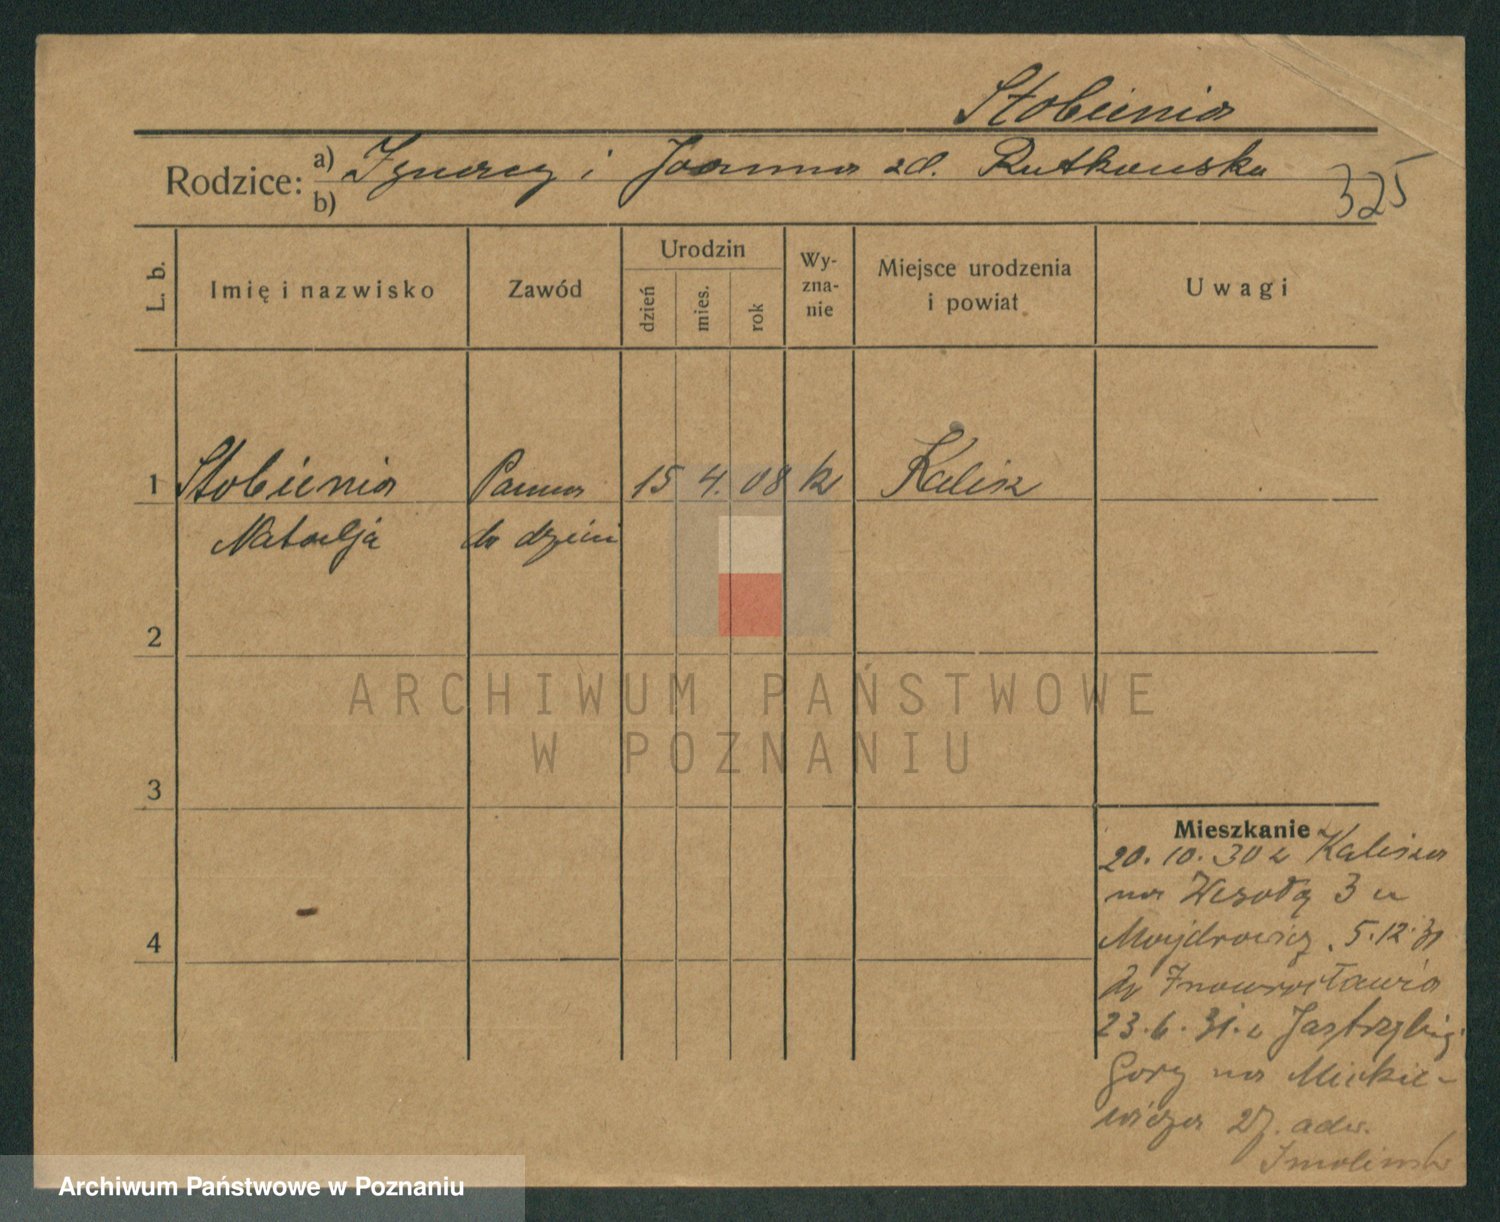 Stobienia
Rodzice: a) Ignacy i Joanna zd. Rutkowska
b)
325
L. b.
Imię i nazwisko
Zawód
Urodzin
dzień
mies.
rok
Wy-
zna-
nie
Miejsce urodzenia
i powiat
Uwagi
1 Stobienia Panna 15 4. 08 Kalisz
Natalja do dzieci
2
3
4
Mieszkanie
20. 10. 30 z Kalisza
na Wesołą 3 u
5.12.
do Inowrocławia
23. 6. 31. z
Góry na Mickie-
wicza 27. adw.
Smoliński
ARCHIWUM PAŃSTWOWE
W POZNANIU
Archiwum Państwowe w Poznaniu